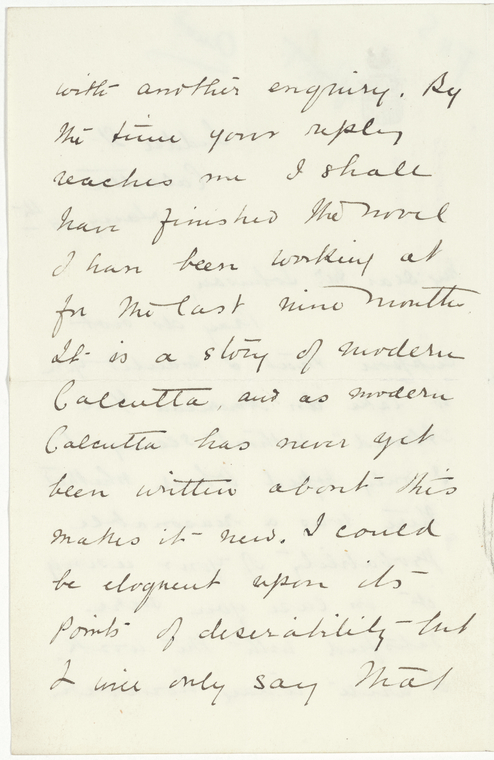 with another enquiry. By
the time your reply
reaches me I shall
have finished the novel
I have been working at
for the last nine months
It is a story of modern
Calcutta, and as modern
Calcutta has never yet
been written about this
makes it new. I could
be eloquent upon its
points of desirability but
I will only say that